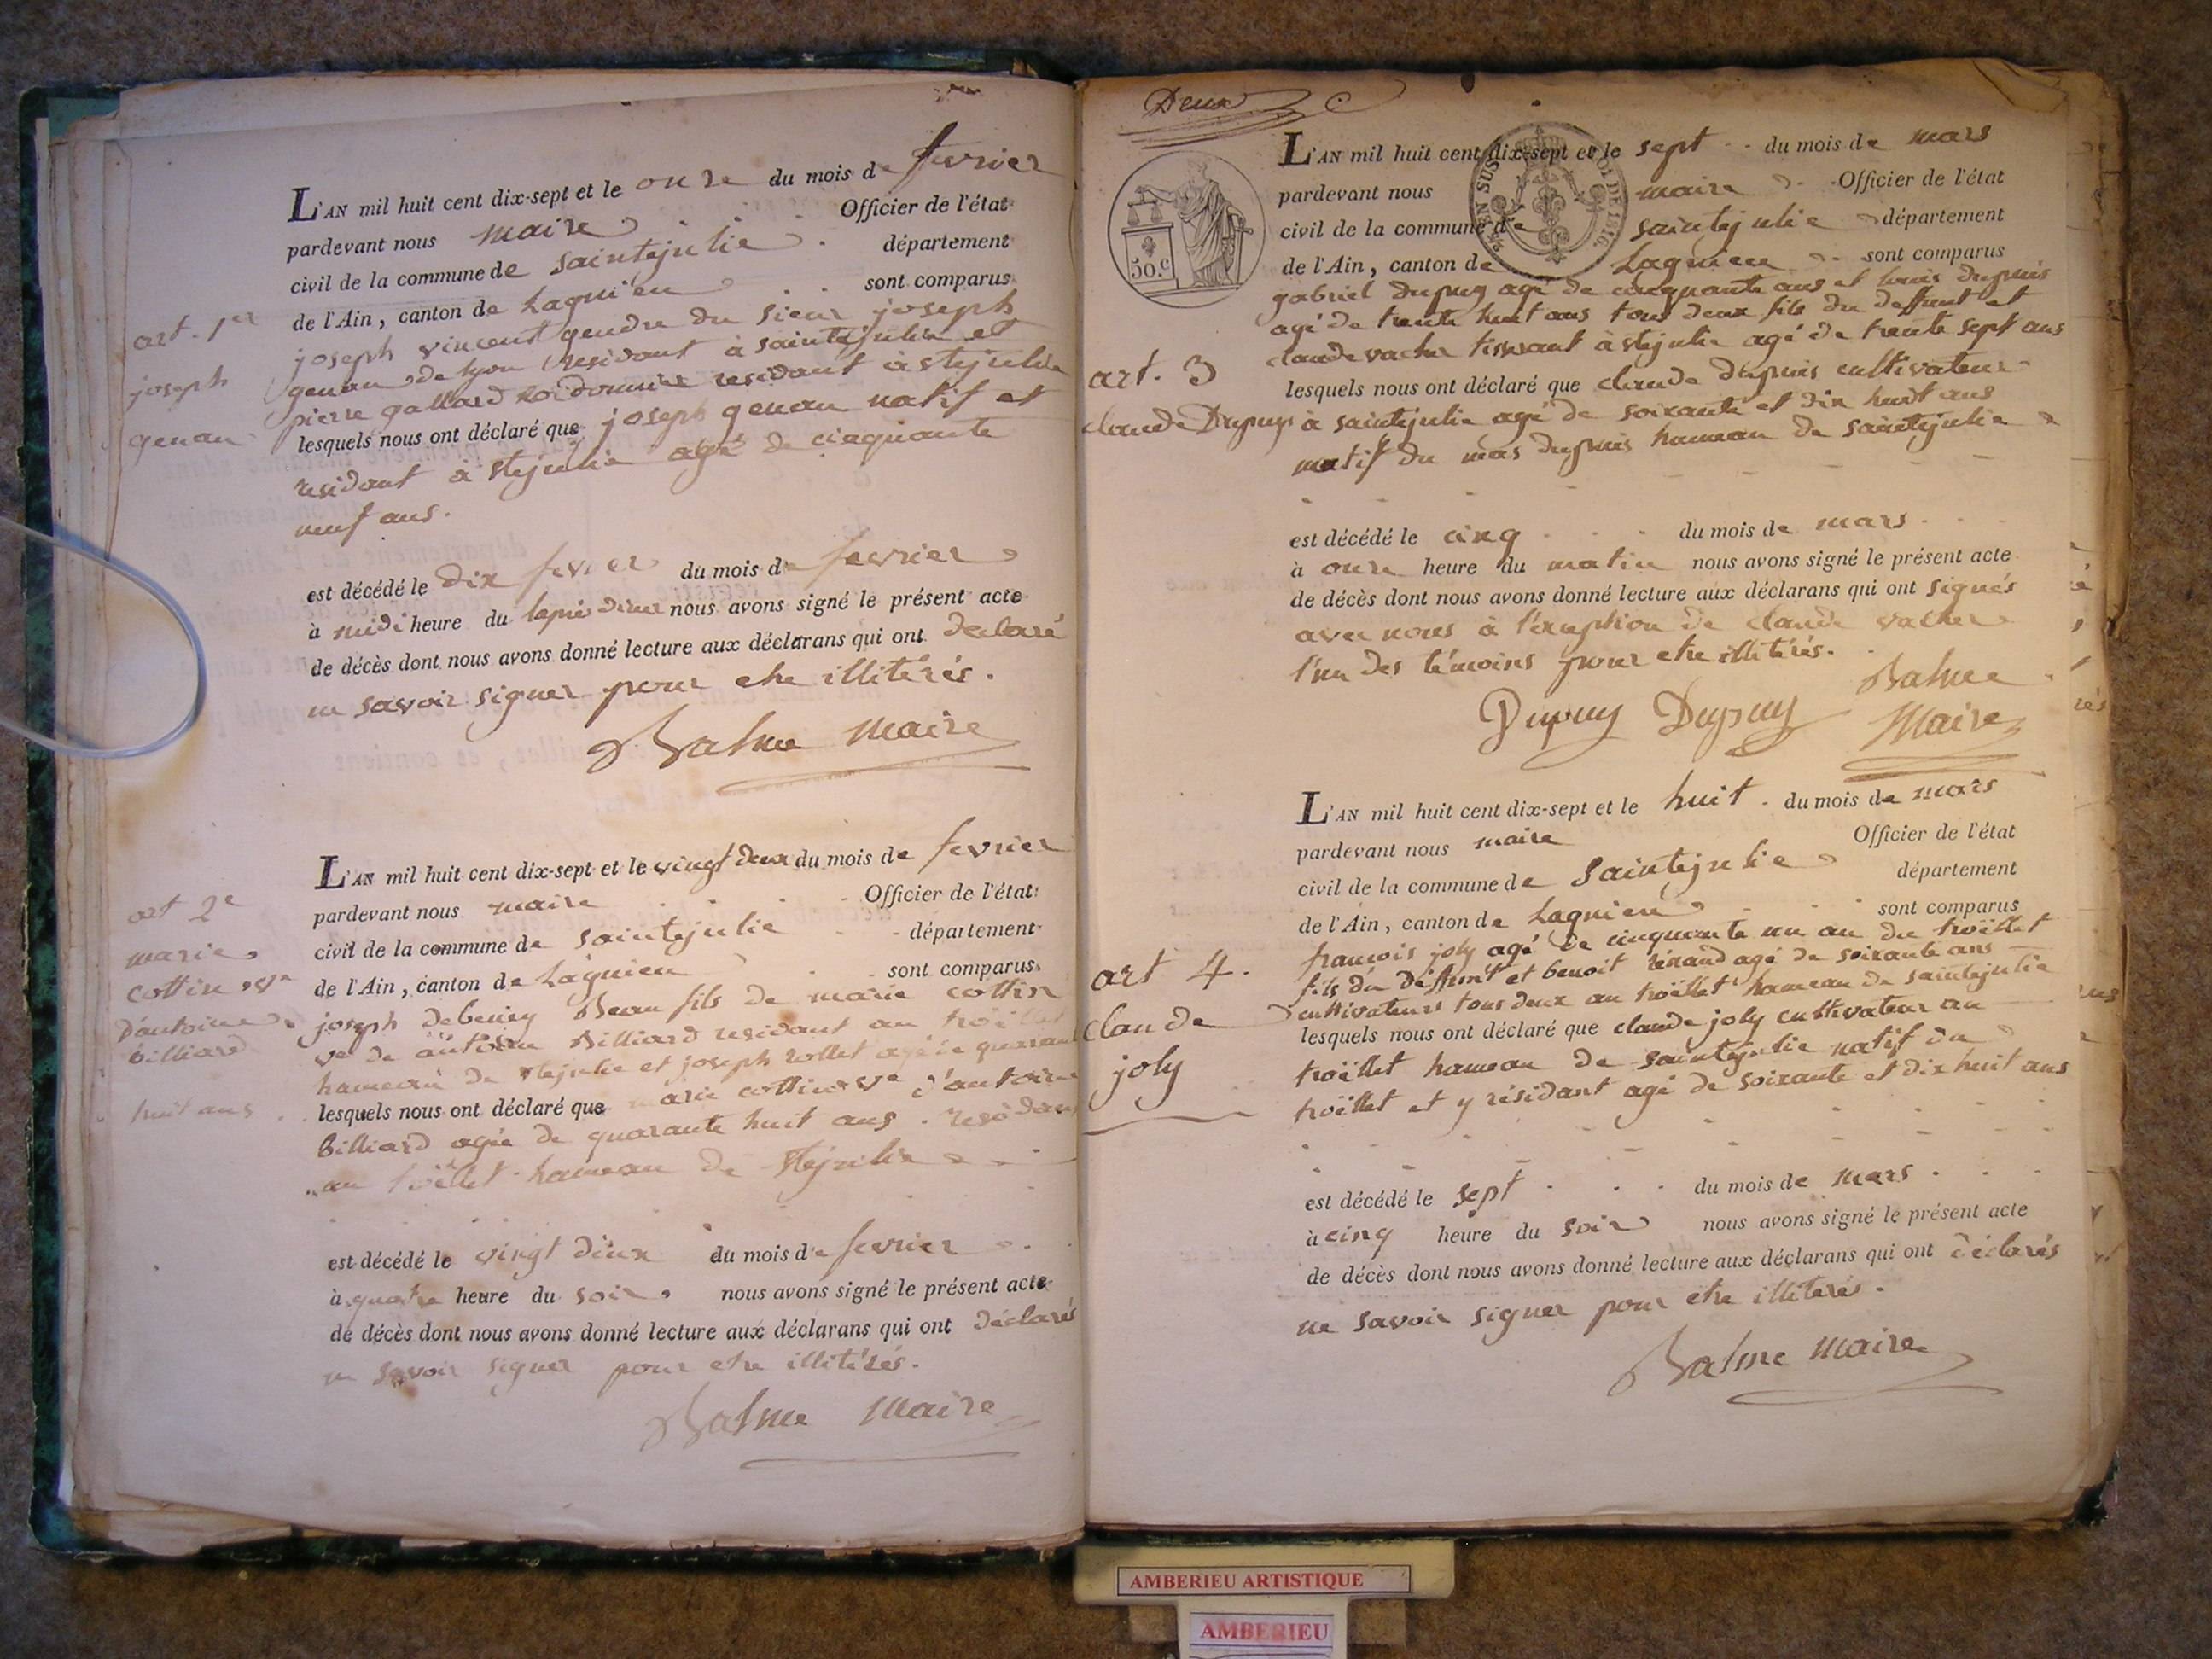 L'AN mil huit cent dix-sept et le onze du mois de fevrier
pardevant nous maire Officier de l'état
civil de la commune de saintejulie département
de l'Ain, canton de Lagnieu sont comparus
art. 1er
joseph
genan
joseph vincent gendre du sieur joseph
genan de lyon residant à saintejulie et
pierre gallard cordonnier residant à stejulie
lesquels nous ont déclaré que joseph genan natif et
residant à stejulie agé de cinquante
neuf ans.
est décédé le dix fevrier du mois de fevrier
à midi heure du nous avons signé le présent acte
de décès dont nous avons donné lecture aux déclarans qui ont declaré
ne savoir signer pour etre illitérés.
Balme maire
L'AN mil huit cent dix-sept et le vingt deux du mois de fevrier
pardevant nous maire Officier de l'état
civil de la commune de saintejulie département
de l'Ain, canton de Lagnieu sont comparus
art 2e
marie
cottin ve
d'antoine
billiard
huit ans
joseph debeney Beau fils de marie cottin
ve de antoine Billiard residant au troëllet
hameau de stejulie et joseph rollet agé de quarante
lesquels nous ont déclaré que marie cottin ve d'antoine
Billiard agée de quarante huit ans. residant
au troëllet hameau de stejulie
est décédé le vingt deux du mois de fevrier
à quatre heure du soir nous avons signé le présent acte
de décès dont nous avons donné lecture aux déclarans qui ont déclarés
ne savoir signer pour etre illitérés.
Balme maire
Deux
50.c
EN SUS
LOI DE 1816.
L'AN mil huit cent dix-sept et le sept du mois de mars
pardevant nous maire Officier de l'état
civil de la commune de saintejulie département
de l'Ain, canton de Lagnieu sont comparus
gabriel dupuy agé de cinquante ans et louis dupuis
agé de trente huit ans tous deux fils du deffunt et
claude vacher tisserant à stejulie agé de trente sept ans
art. 3
claude Dupuy
lesquels nous ont déclaré que claude dupuis cultivateur
à saintejulie agé de soixante et dix huit ans
natif du mas dupuis hameau de saintejulie
est décédé le cinq du mois de mars
à onze heure du matin nous avons signé le présent acte
de décès dont nous avons donné lecture aux déclarans qui ont signés
avec nous à l'exception de claude vacher
l'un des témoins pour etre illitérés.
Dupuy Dupuy Balme
Maire
L'AN mil huit cent dix-sept et le huit du mois de mars
pardevant nous maire Officier de l'état
civil de la commune de saintejulie département
de l'Ain, canton de Lagnieu sont comparus
françois joly agé de cinquante un an du troëllet
fils du deffunt et benoit rénand agé de soixante ans
cultivateurs tous deux au troëllet hameau de saintejulie
art 4.
claude
joly
lesquels nous ont déclaré que claude joly cultivateur au
troëllet hameau de saintejulie natif du
troëllet et y résidant agé de soixante et dix huit ans
est décédé le sept du mois de mars
à cinq heure du soir nous avons signé le présent acte
de décès dont nous avons donné lecture aux déclarans qui ont déclarés
ne savoir signer pour etre illitérés.
Balme maire
AMBERIEU ARTISTIQUE
AMBERIEU